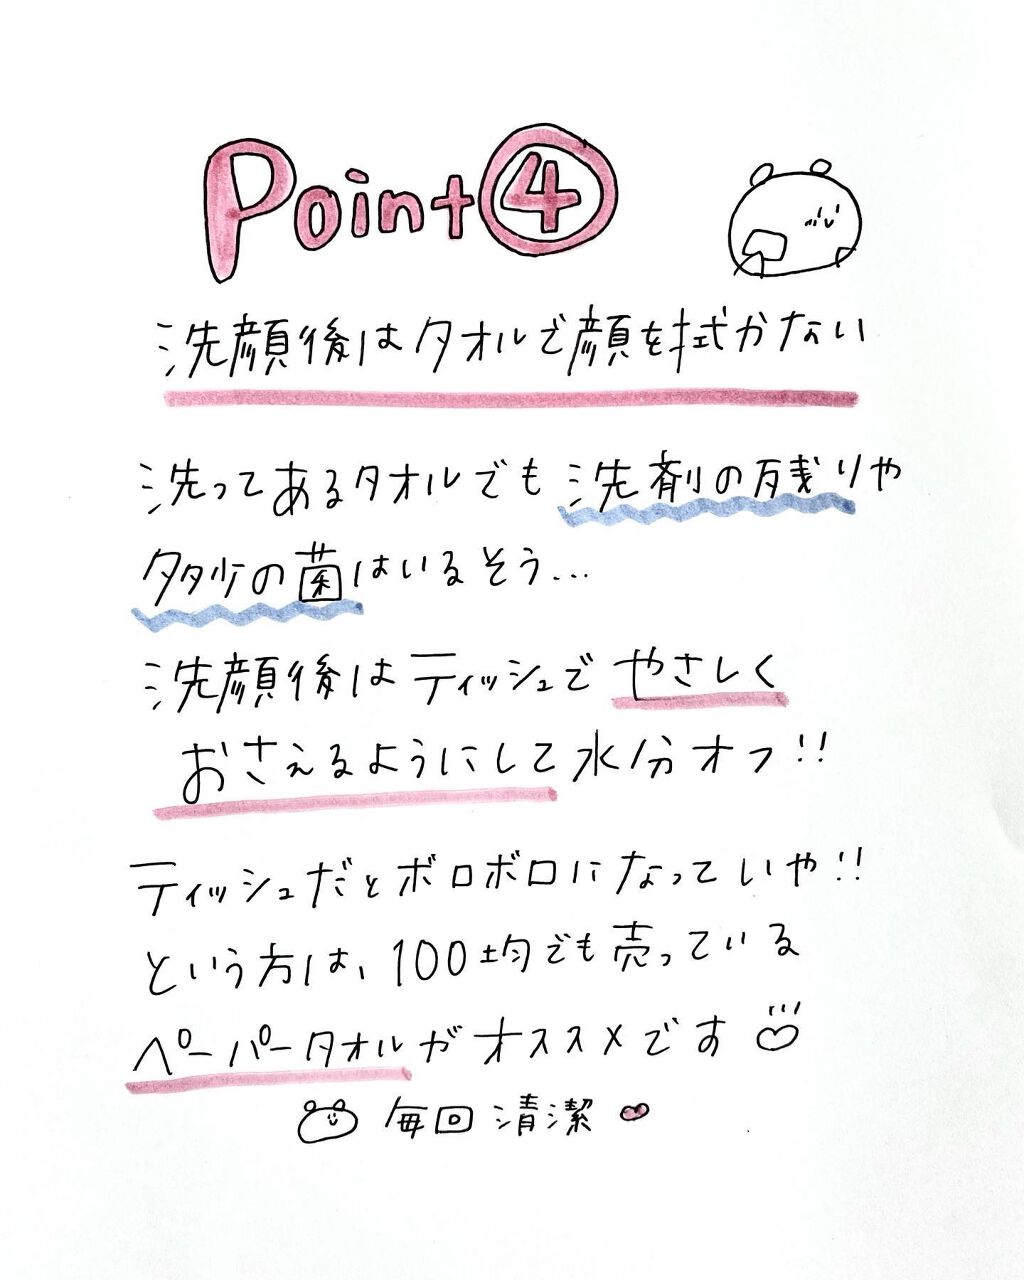 Point④
洗顔後はタオルで顔を拭かない
洗ってあるタオルでも洗剤の残りや
多少の菌はいるそう...
洗顔後はティッシュでやさしく
おさえるようにして水分オフ!!
ティッシュだとボロボロになっていや!!
という方は、100均でも売っている
ペーパータオルがオススメです
毎回清潔